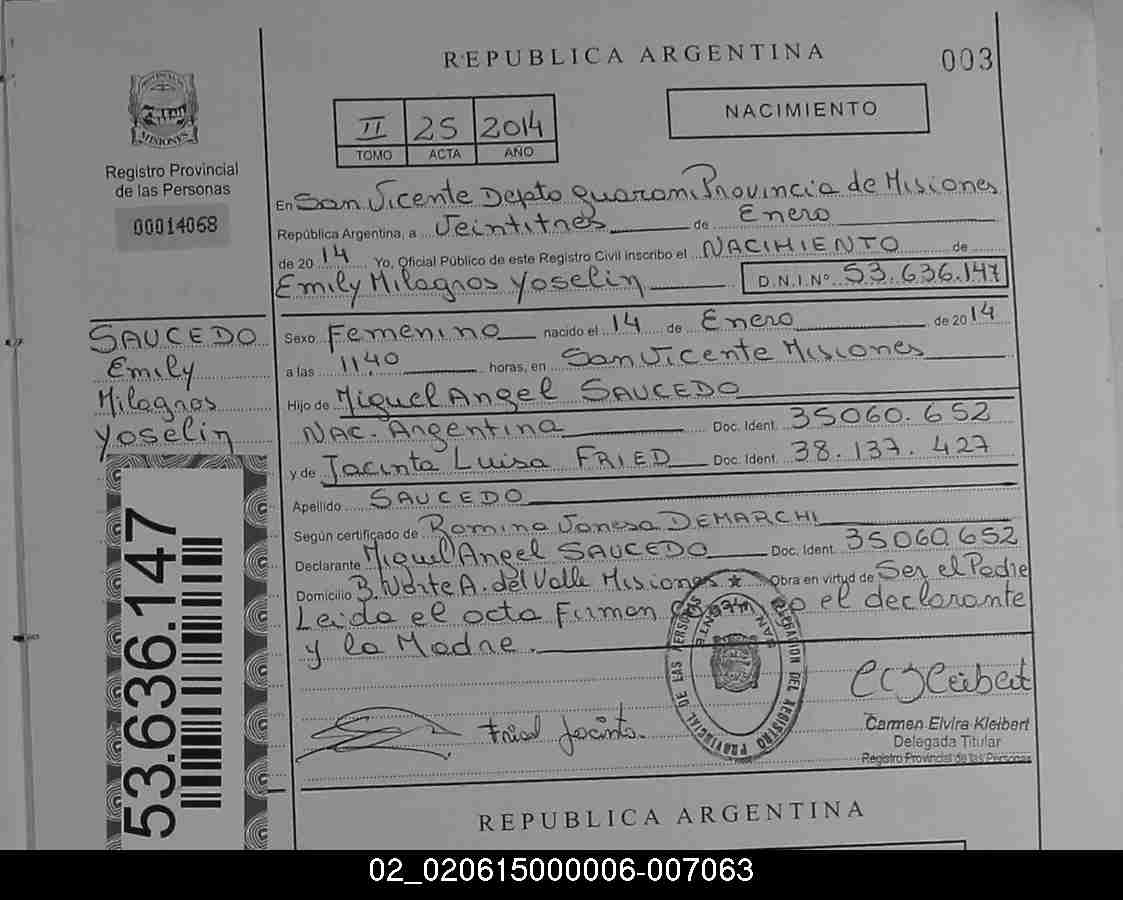 REPUBLICA ARGENTINA
003
PROVINCIA DE
MISIONES
Registro Provincial
de las Personas
00014068
II 25 2014
TOMO ACTA AÑO
NACIMIENTO
En San Vicente Depto Guarani Provincia de Misiones
República Argentina, a Veintitres de Enero
de 20 14 Yo, Oficial Público de este Registro Civil inscribo el NACIMIENTO de
Emily Milagros Yoselin D.N.I.Nº 53.636.147
SAUCEDO
Emily
Milagros
Yoselin
Sexo Femenino nacido el 14 de Enero de 20 14
a las 11,40 horas, en San Vicente Misiones
Hijo de Miguel Angel SAUCEDO
NAC. Argentina Doc. Ident. 35060.652
y de Jacinta Luisa FRIED Doc. Ident. 38.137.427
Apellido SAUCEDO
Según certificado de Romina Vanesa DEMARCHI
Declarante Miguel Angel SAUCEDO Doc. Ident. 35060652
Domicilio B. Norte A. del Valle Misiones Obra en virtud de Ser el Padre
Leida el acta Firman el declarante
y la Madre.
53.636.147
SAN VICENTE
REGISTRO PROVINCIAL DE LAS PERSONAS
Fried Jacinta.
Carmen Elvira Kleibert
Delegada Titular
Registro Provincial de las Personas
REPUBLICA ARGENTINA
02_020615000006-007063